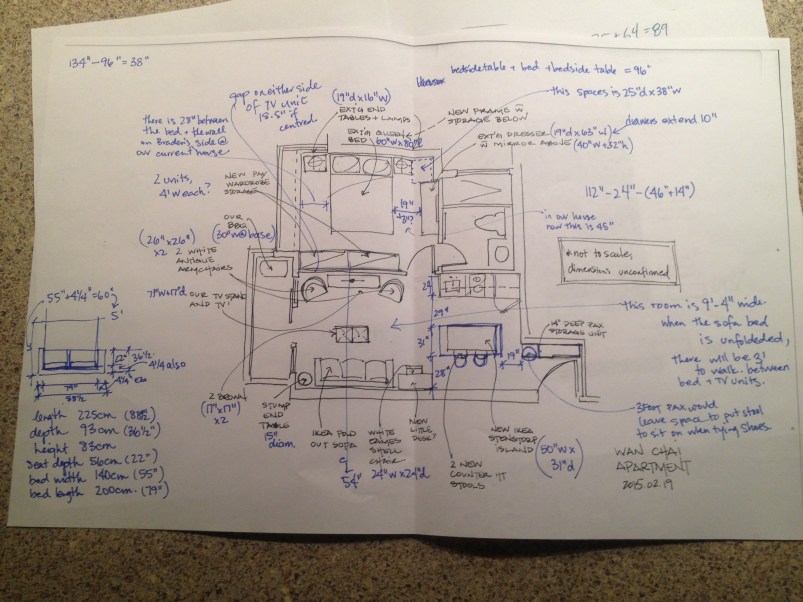 +64 = 89
134" - 96" = 38"
gap on either side
of TV unit
18.5" if
centred
(19"d x 16"w)
EXT'G END
TABLES + LAMPS
EXT'G QUEEN
BED
60"w x 80"
bedside table + bed + bedside table = 96"
this spaces is 25"d x 38"w
NEW FRAME W
STORAGE BELOW
EXT'G DRESSER (19"d x 63"w)
W MIRROR ABOVE (40"w x 32"h)
drawers extend 10"
there is 28" between
the bed + the wall
on Braden's side @
our current house
2 units,
4' w each?
NEW PAX
WARDROBE
STORAGE
19"
112" - 24" - (46" + 14")
in our house
now this is 45"
OUR
BBQ
(30"w @ base)
(26" x 26")
x2
2 WHITE
ANTIQUE
ARMCHAIRS
* not to scale,
dimensions unconfirmed
71"w 17"d
OUR TV STAND
AND TV
29"
31"
28"
19"
14" DEEP PAX
STORAGE UNIT
this room is 9'-4" wide
when the sofa bed
is unfolded,
there will be 2'
to walk between
bed + TV units.
55" + 4 1/4" = 60"
5'
22"
36 1/2
4 1/4 also
79"
88 1/2
length 225cm (88 1/2)
depth 93cm (36 1/2")
height 83cm
seat depth 56cm (22")
bed width 140cm (55")
bed length 200cm (79")
2 BROWN
(17" x 17")
x2
STUMP
END
TABLE
15"
diam
IKEA FOLD
OUT SOFA
54"
WHITE
EAMES
SHELL
CHAIR
24"w x 24"d
NEW
LITTLE
DESK?
2 NEW
COUNTER HT
STOOLS
NEW IKEA
STENSTORP
ISLAND
(50"w x
31"d)
3 FOOT PAX would
leave space to put stool
to sit on when tying shoes
WAN CHAI
APARTMENT
2015.02.19